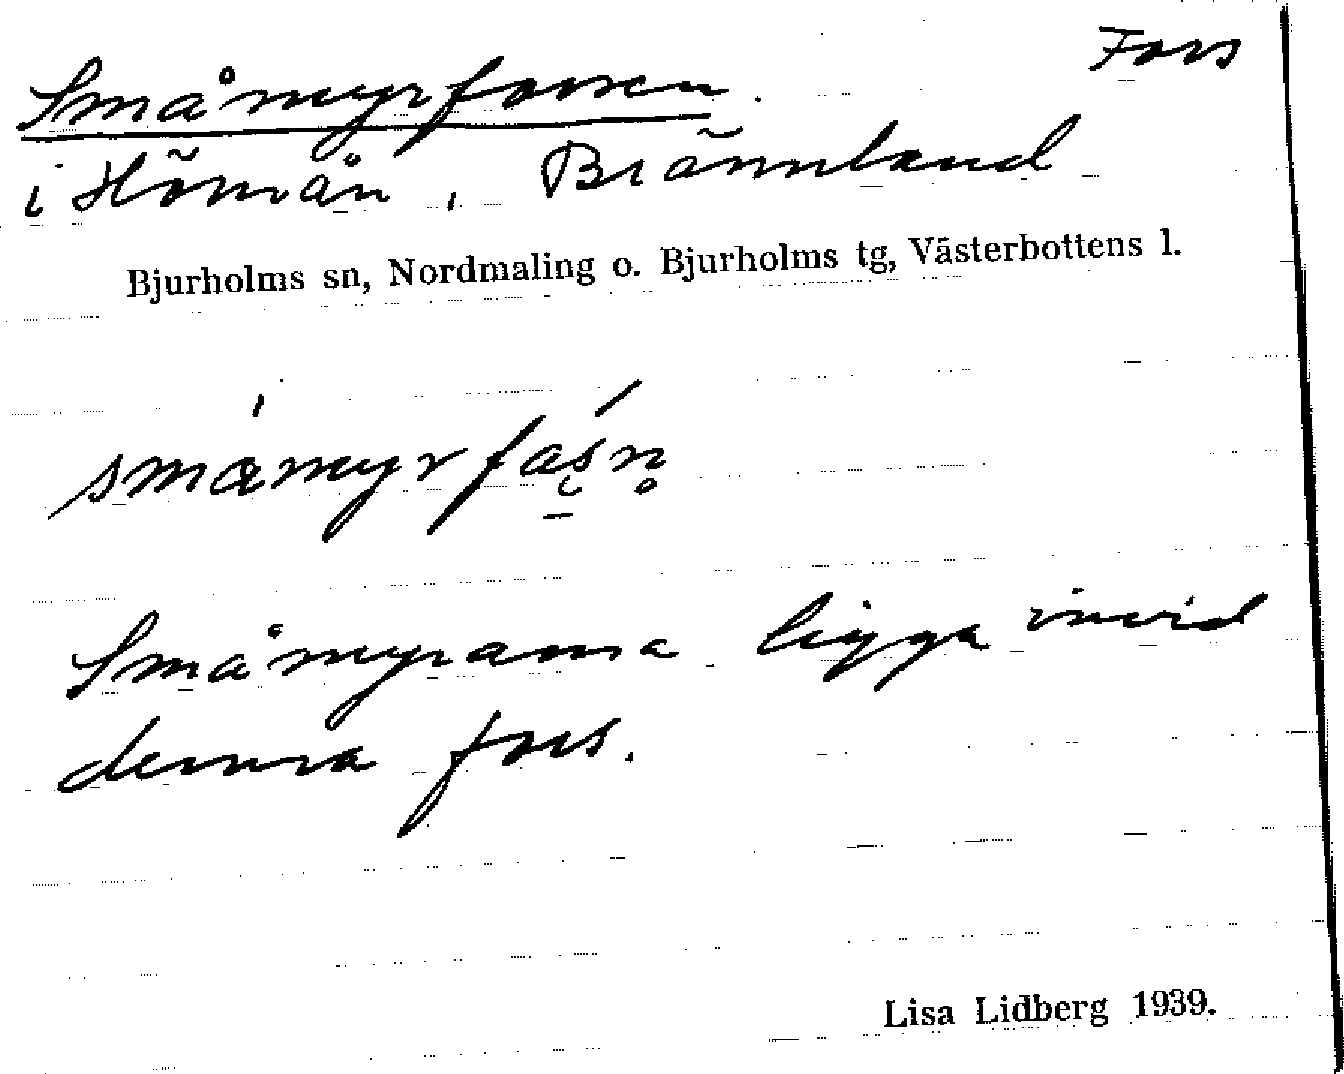 Småmyrforsen. Fors
i Hörnån, Brännland
Bjurholms sn, Nordmaling o. Bjurholms tg, Västerbottens l.
Småmyrarna ligga invid
denna fors.
Lisa Lidberg 1939.